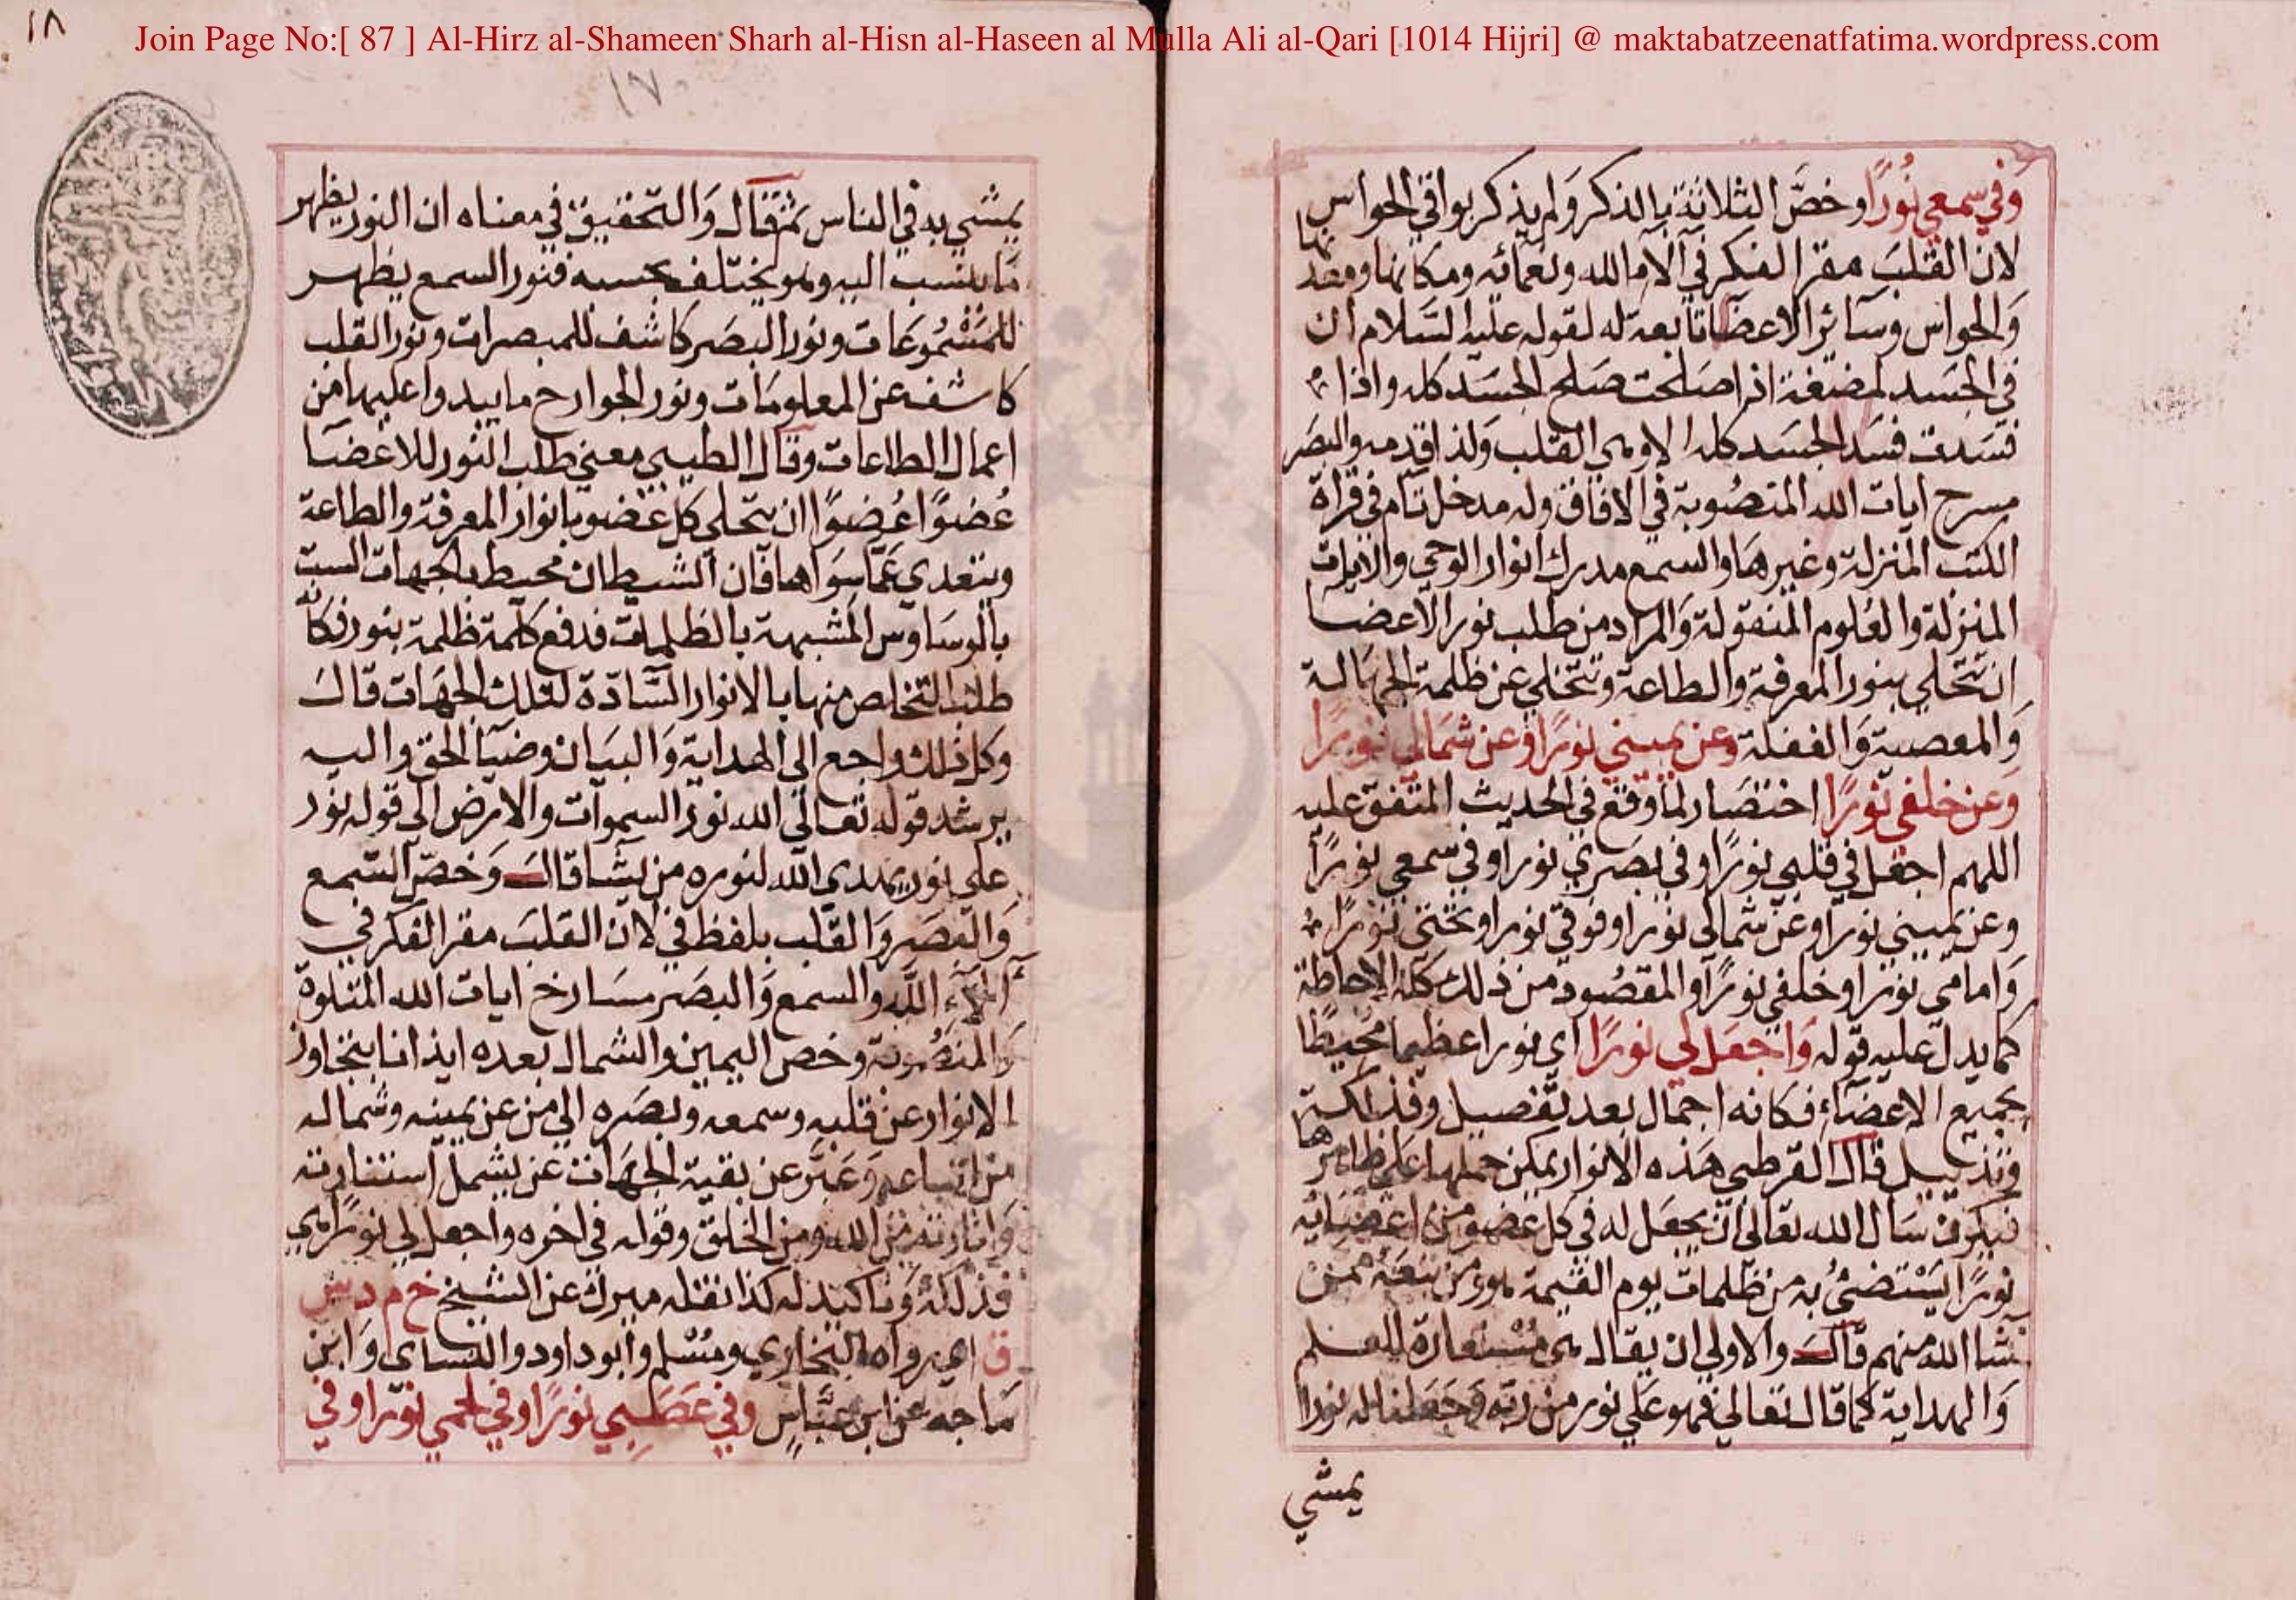 Join Page No:[ 87 ] Al-Hirz al-Shameen Sharh al-Hisn al-Haseen al Mulla Ali al-Qari [1014 Hijri] @ maktabatzeenatfatima.wordpress.com
وَفي سمعي نُورًا وخصَّ الثلاثة بالذكر وَلم يذكر بواقي الحواس
لان القلبَ مقر الفكر في آلاء الله ونعمائه ومكانها ومعدنها
وَالحواس وسآئر الاعضا تابعة له لقوله عليه السَّلام ان
في الجسَد لمضغة اذا صَلحت صَلح الجسَد كله واذا
فسَدت فسَد الجسَد كله الا وهي القلب وَلذا قدمه والبصَر
مسرح ايات الله المنصُوبة في الافاق وله مدخل تام في قراة
الكتب المنزلة وغيرهَا والسمع مدرك انوار الوحي والايات
المنزلة والعُلوم المنقولة وَالمراد من طلب نور الاعضا
ان تتحلي بنور المعرفة والطاعة وتتخلي عن ظلمة الجهَالة
وَالمعصية وَالغفلة وعن يميني نورًا وعن شمالي نورًا
وَعن خلفي نورًا اختصَار لما وقع في الحديث المتفق عليه
اللهم اجعل في قلبي نورًا وفي بصَري نورا وفي سمعي نورًا
وعن يميني نورا وعن شمالي نورا وفوقي نورا وتحتي نورًا
وَامامي نورا وخلفي نورًا والمقصُود من ذلك كله الاحاطة
كما يدل عليه قوله وَاجعَل لي نورًا اي نورا عظيما محيطًا
بجميع الاعضآء فكانه اجمال بعد تفصيل وفذلكة
وتذييل قال القرطبي هَذه الانوار يمكن حملها على ظاهرها
فيكون سَال الله تعالى ان يجعَل له في كل عضو من اعضَائه
نورًا يَسْتضئ به من ظلمات يوم القيمة هو ومن تبعَهُ ممن
شا الله منهم قال والاولي ان يقال هي مُسْتعارة للعلم
وَالهداية كما قال تعالي فهو عَلي نور من ربه وَجَعَلنا له نورا
يمشي
١٨
١٧
يمشي به في الناس ثم قال وَالتحقيق في معناه ان النور يظهر
مَا ينسب اليه وهو يختلف بحسبه فنور السمع يظهر
للمَسْمُوعَات ونور البصَر كاشف للمبصرات ونور القلب
كاشف عن المعلومَات ونور الجوارح ما يبدوا عليها من
اعمال الطاعات وقال الطيبي معني طلب النور للاعضا
عُضوًا عُضوًا ان يتحلي كل عضو بانوار المعرفة والطاعة
ويتعدي عَمّا سِوَاهما فان الشيطان محيط بالجهات الست
بالوسَاوس المشبهة بالظلمات فدفع كلمة ظلمة بنور فكانه
طلب التخلص منها بالانوار السَّادّة لتلك الجهَات قال
وكل ذلك راجع الي الهداية وَالبيَان وضيَآ الحق واليه
يرشد قوله تعالي الله نور السموات والارض الى قوله نور
على نور يهدي الله لنوره من يشا قال وَخصّ السّمع
وَالبَصَر وَالقلب بلفظ في لان القلبَ مقر الفكر في
آلآء الله والسمع وَالبصَر مسَارح ايات الله المتلوة
وَالمنصُوبة وخص اليمين والشمال بعده ايذانا بتجاوز
الانوار عن قلبه وسمعه وبصَره الي من عن يمينه وشماله
من اتباعه وَعَبَّر عن بقية الجهَات عن يشمل استنارته
وَانارته من الله ومن الخلق وقوله في اخره واجعل لي نورًا هي
فذلكة وَتاكيد له كذا نقله ميرك عن الشيخ خ م د س
ق اي رواه البخاري ومُسْلم وابو داود والنساى وَابن
مَاجه عن ابن عبَّاسٍ وفي عَصَبي نورًا وفي لحمي نورا وفي